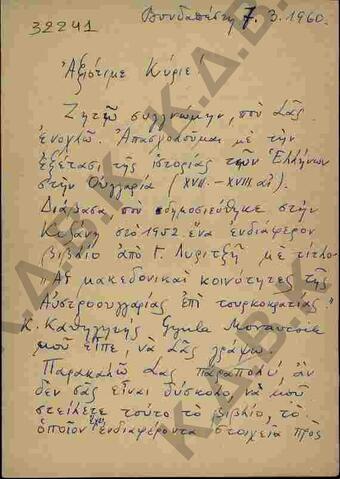 Βουδαπέστη 7. 3. 1960.
32241
Ἀξιότιμε Κύριε!
Ζητῶ συγγνώμην, ποὺ Σᾶς
ἐνοχλῶ. Ἀπασχολοῦμαι μὲ τὴν
ἐξέτασι τῆς ἱστορίας τῶν Ἑλλήνων
στὴν Οὐγγαρία (XVII. – XVIII. αἰ.).
Διάβασα, ποὺ δημοσιεύθηκε στὴν
Κοζάνη στὸ 1952. ἕνα ἐνδιαφέρον
βιβλίο ἀπὸ Γ. Λυριτζῆ μὲ τίτλο
„Αἱ μακεδονικαὶ κοινότητες τῆς
Αὐστροουγγαρίας ἐπὶ τουρκοκρατίας."
Κ. Καθηγητὴς Gyula
μοῦ εἶπε, νὰ Σᾶς γράψω.
Παρακαλῶ Σας παραπολύ ἂν
δὲν σᾶς εἶναι δύσκολο, νὰ μοῦ
στείλετε τοῦτο τὸ βιβλίο, τὸ
ὁποῖον ἔχει ἐνδιαφέροντα στοιχεῖα πρὸς
Κ.Δ.Β.Κ